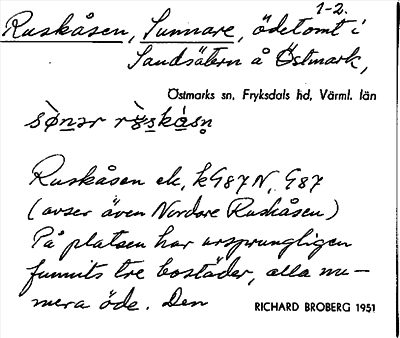 1-2.
Ruskåsen, Sunnare, ödetomt i
Sandsätern å Östmark,
Östmarks sn, Fryksdals hd, Värml. län
Ruskåsen ek, k987N, 987
(avser även Nordre Ruskåsen)
På platsen har ursprungligen
funnits tre bostäder, alla nu-
mera öde. Den
RICHARD BROBERG 1951